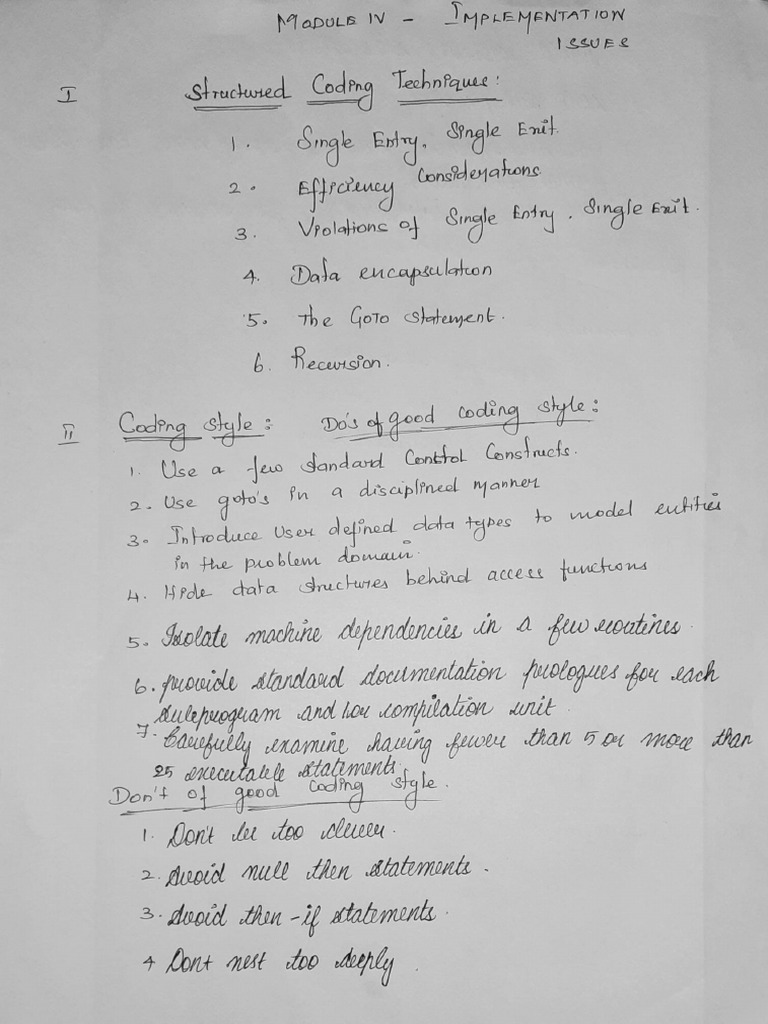 MODULE IV - IMPLEMENTATION
ISSUES
I Structured Coding Techniques:
1. Single Entry, Single Exit.
2. Efficiency Considerations.
3. Violations of Single Entry, Single Exit.
4. Data encapsulation
5. The GOTO statement.
6. Recursion.
II Coding style: Do's of good coding style:
1. Use a few standard Control Constructs.
2. Use goto's in a disciplined manner
3. Introduce user defined data types to model entities
in the problem domain.
4. Hide data structures behind access functions
5. Isolate machine dependencies in a few routines.
6. provide standard documentation prologues for each
subprogram and/or compilation unit.
7. Carefully examine having fewer than 5 or more than
25 executable statements.
Don't of good coding style.
1. Don't be too clever.
2. Avoid null then statements.
3. Avoid then-if statements.
4 Dont nest too deeply.